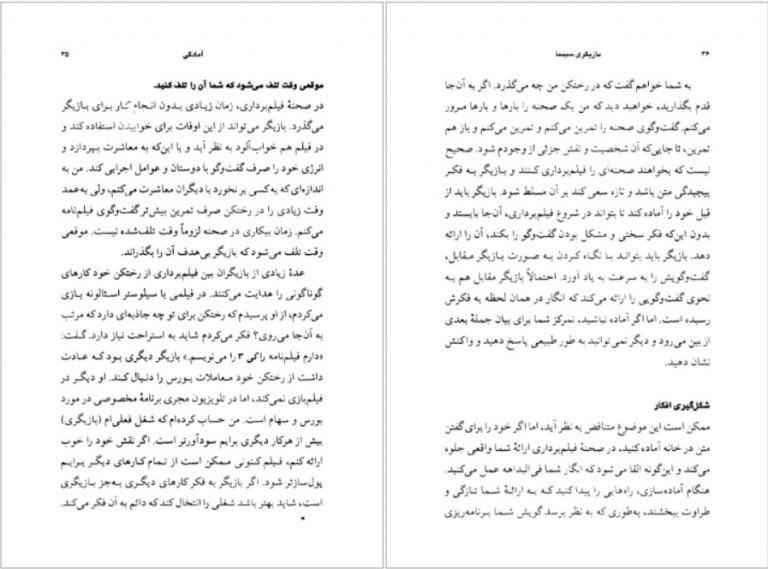 آمادگی ۳۵
موقعی وقت تلف می‌شود که شما آن را تلف کنید.
در صحنهٔ فیلم‌برداری، زمان زیادی بدون انجام کار برای بازیگر
می‌گذرد. بازیگر می‌تواند از این اوقات برای خوابیدن استفاده کند و
در فیلم هم خواب‌آلود به نظر آید و یا این‌که به معاشرت بپردازد و
انرژی خود را صرف گفت‌وگو با دوستان و عوامل اجرایی کند. من به
اندازه‌ای که به‌کسی بر نخورد با دیگران معاشرت می‌کنم، ولی به‌عمد
وقت زیادی را در رختکن صرف تمرین بیش‌تر گفت‌وگوی فیلم‌نامه
می‌کنم. زمان بیکاری در صحنه لزوماً وقت تلف‌شده نیست. موقعی
وقت تلف می‌شود که بازیگر بی‌هدف آن را بگذراند.
عدهٔ زیادی از بازیگران بین فیلم‌برداری از رختکن خود کارهای
گوناگونی را هدایت می‌کنند. در فیلمی با سیلوستر استالونه بازی
می‌کردم، از او پرسیدم که رختکن برای تو چه جاذبه‌ای دارد که مرتب
به آن‌جا می‌روی؟ فکر می‌کردم شاید به استراحت نیاز دارد. گفت:
«دارم فیلم‌نامه راکی ۳ را می‌نویسم.» بازیگر دیگری بود که عادت
داشت از رختکن خود معاملات بورس را دنبال کند. او دیگر در
فیلم‌بازی نمی‌کند، اما در تلویزیون مجری برنامهٔ مخصوصی در مورد
بورس و سهام است. من حساب کرده‌ام که شغل فعلی‌ام (بازیگری)
بیش از هرکار دیگری برایم سودآورتر است. اگر نقش خود را خوب
ارائه کنم، فیلم کنونی ممکن است از تمام کارهای دیگر برایم
پول‌سازتر شود. اگر بازیگر به فکر کارهای دیگری به‌جز بازیگری
است، شاید بهتر باشد شغلی را انتخال کند که دائم به آن فکر می‌کند.
*
۳۶ بازیگری سینما
به شما خواهم گفت که در رختکن من چه می‌گذرد. اگر به آن‌جا
قدم بگذارید، خواهید دید که من یک صحنه را بارها و بارها مرور
می‌کنم. گفت‌وگوی صحنه را تمرین می‌کنم و تمرین می‌کنم و باز هم
تمرین، تا جایی‌که آن شخصیت و نقش جزئی از وجودم شود. صحیح
نیست که بخواهند صحنه‌ای را فیلم‌برداری کنند و بازیگر به فکر
پیچیدگی متن باشد و تازه سعی کند بر آن مسلط شود. بازیگر باید از
قبل خود را آماده کند تا بتواند در شروع فیلم‌برداری، آن‌جا بایستد و
بدون این‌که فکر سختی و مشکل بودن گفت‌وگو را بکند، آن را ارائه
دهد. بازیگر باید بتواند با نگاه کردن به صورت بازیگر مقابل،
گفت‌وگویش را به سرعت به یاد آورد. احتمالاً بازیگر مقابل هم به
نحوی گفت‌وگویی را ارائه می‌کند که انگار در همان لحظه به فکرش
رسیده است. اما اگر آماده نباشید، تمرکز شما برای بیان جملهٔ بعدی
از بین می‌رود و دیگر نمی‌توانید به طور طبیعی پاسخ دهید و واکنش
نشان دهید.
شکل‌گیری افکار
ممکن است این موضوع متناقض به نظر آید، اما اگر خود را برای گفتن
متن در خانه آماده کنید، در صحنهٔ فیلم‌برداری ارائهٔ شما واقعی جلوه
می‌کند و این‌گونه القا می‌شود که انگار شما فی‌البداهه عمل می‌کنید.
هنگام آماده‌سازی، راه‌هایی را پیدا کنید که به ارائهٔ شما تازگی و
طراوت ببخشند، به‌طوری که به نظر برسد گویش شما برنامه‌ریزی